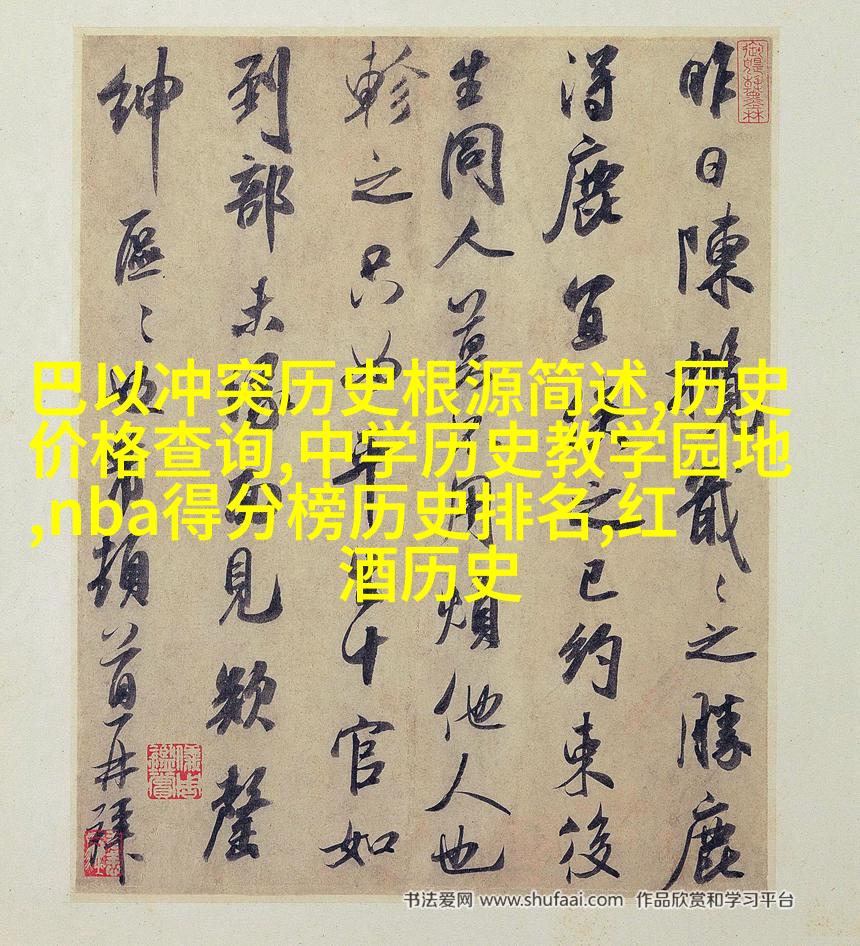 昨日陳攬戢〻之勝鹿
得鹿宜之已約束後
生同人用煩他人也
軫之只如十官如
到部未見欵罄
紳區〻頓首再拜
巴以冲突历史根源简述,历史
价格查询,中学历史教学园地
,nba得分榜历史排名,红
酒历史
书法爱网 www.shufaai.com 作品欣赏和学习平台